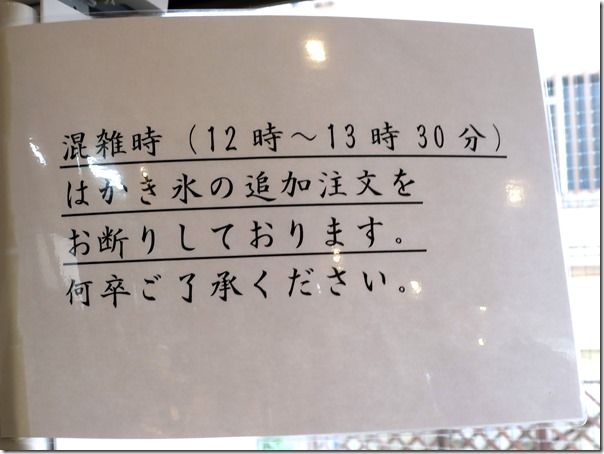 混雑時（12時～13時30分）
はかき氷の追加注文を
お断りしております。
何卒ご了承ください。